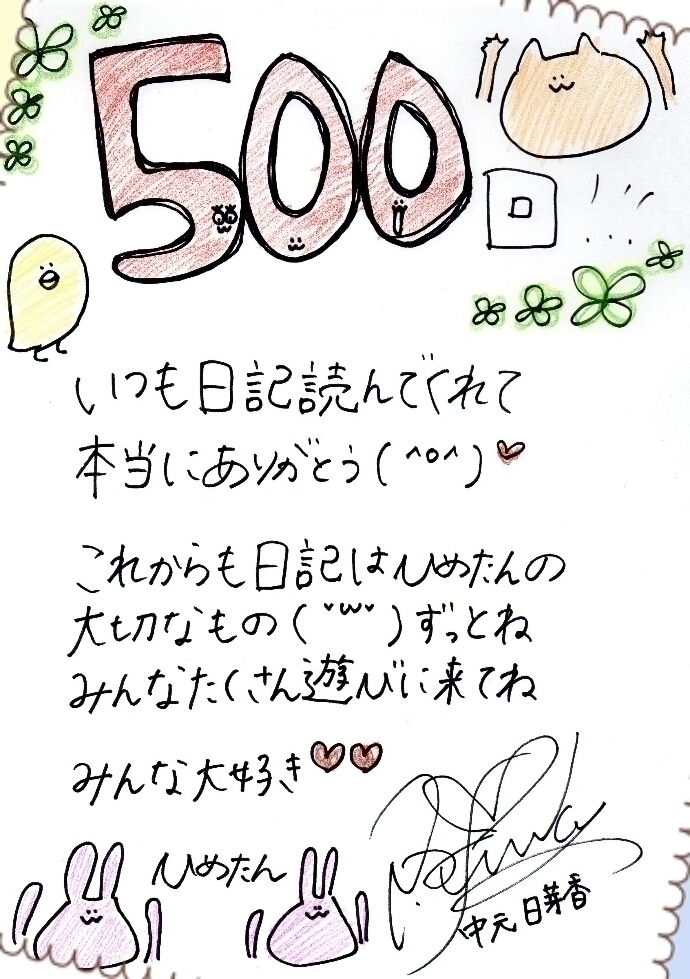 500回
いつも日記読んでくれて
本当にありがとう(^o^)♥
これからも日記はひめたんの
大切なもの(˘ω˘)ずっとね
みんなたくさん遊びに来てね
みんな大好き♥♥
ひめたん
中元日芽香